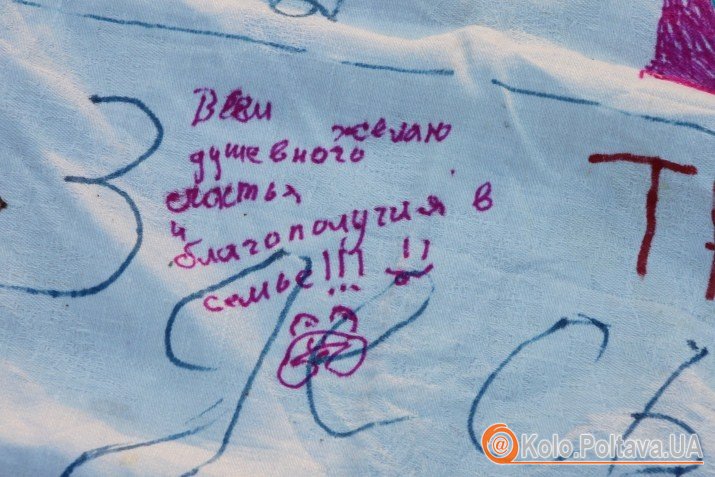 Всем желаю
душевного
счастья
и
благополучия в
семье!!!
З
Т
С
@Kolo.Poltava.UA